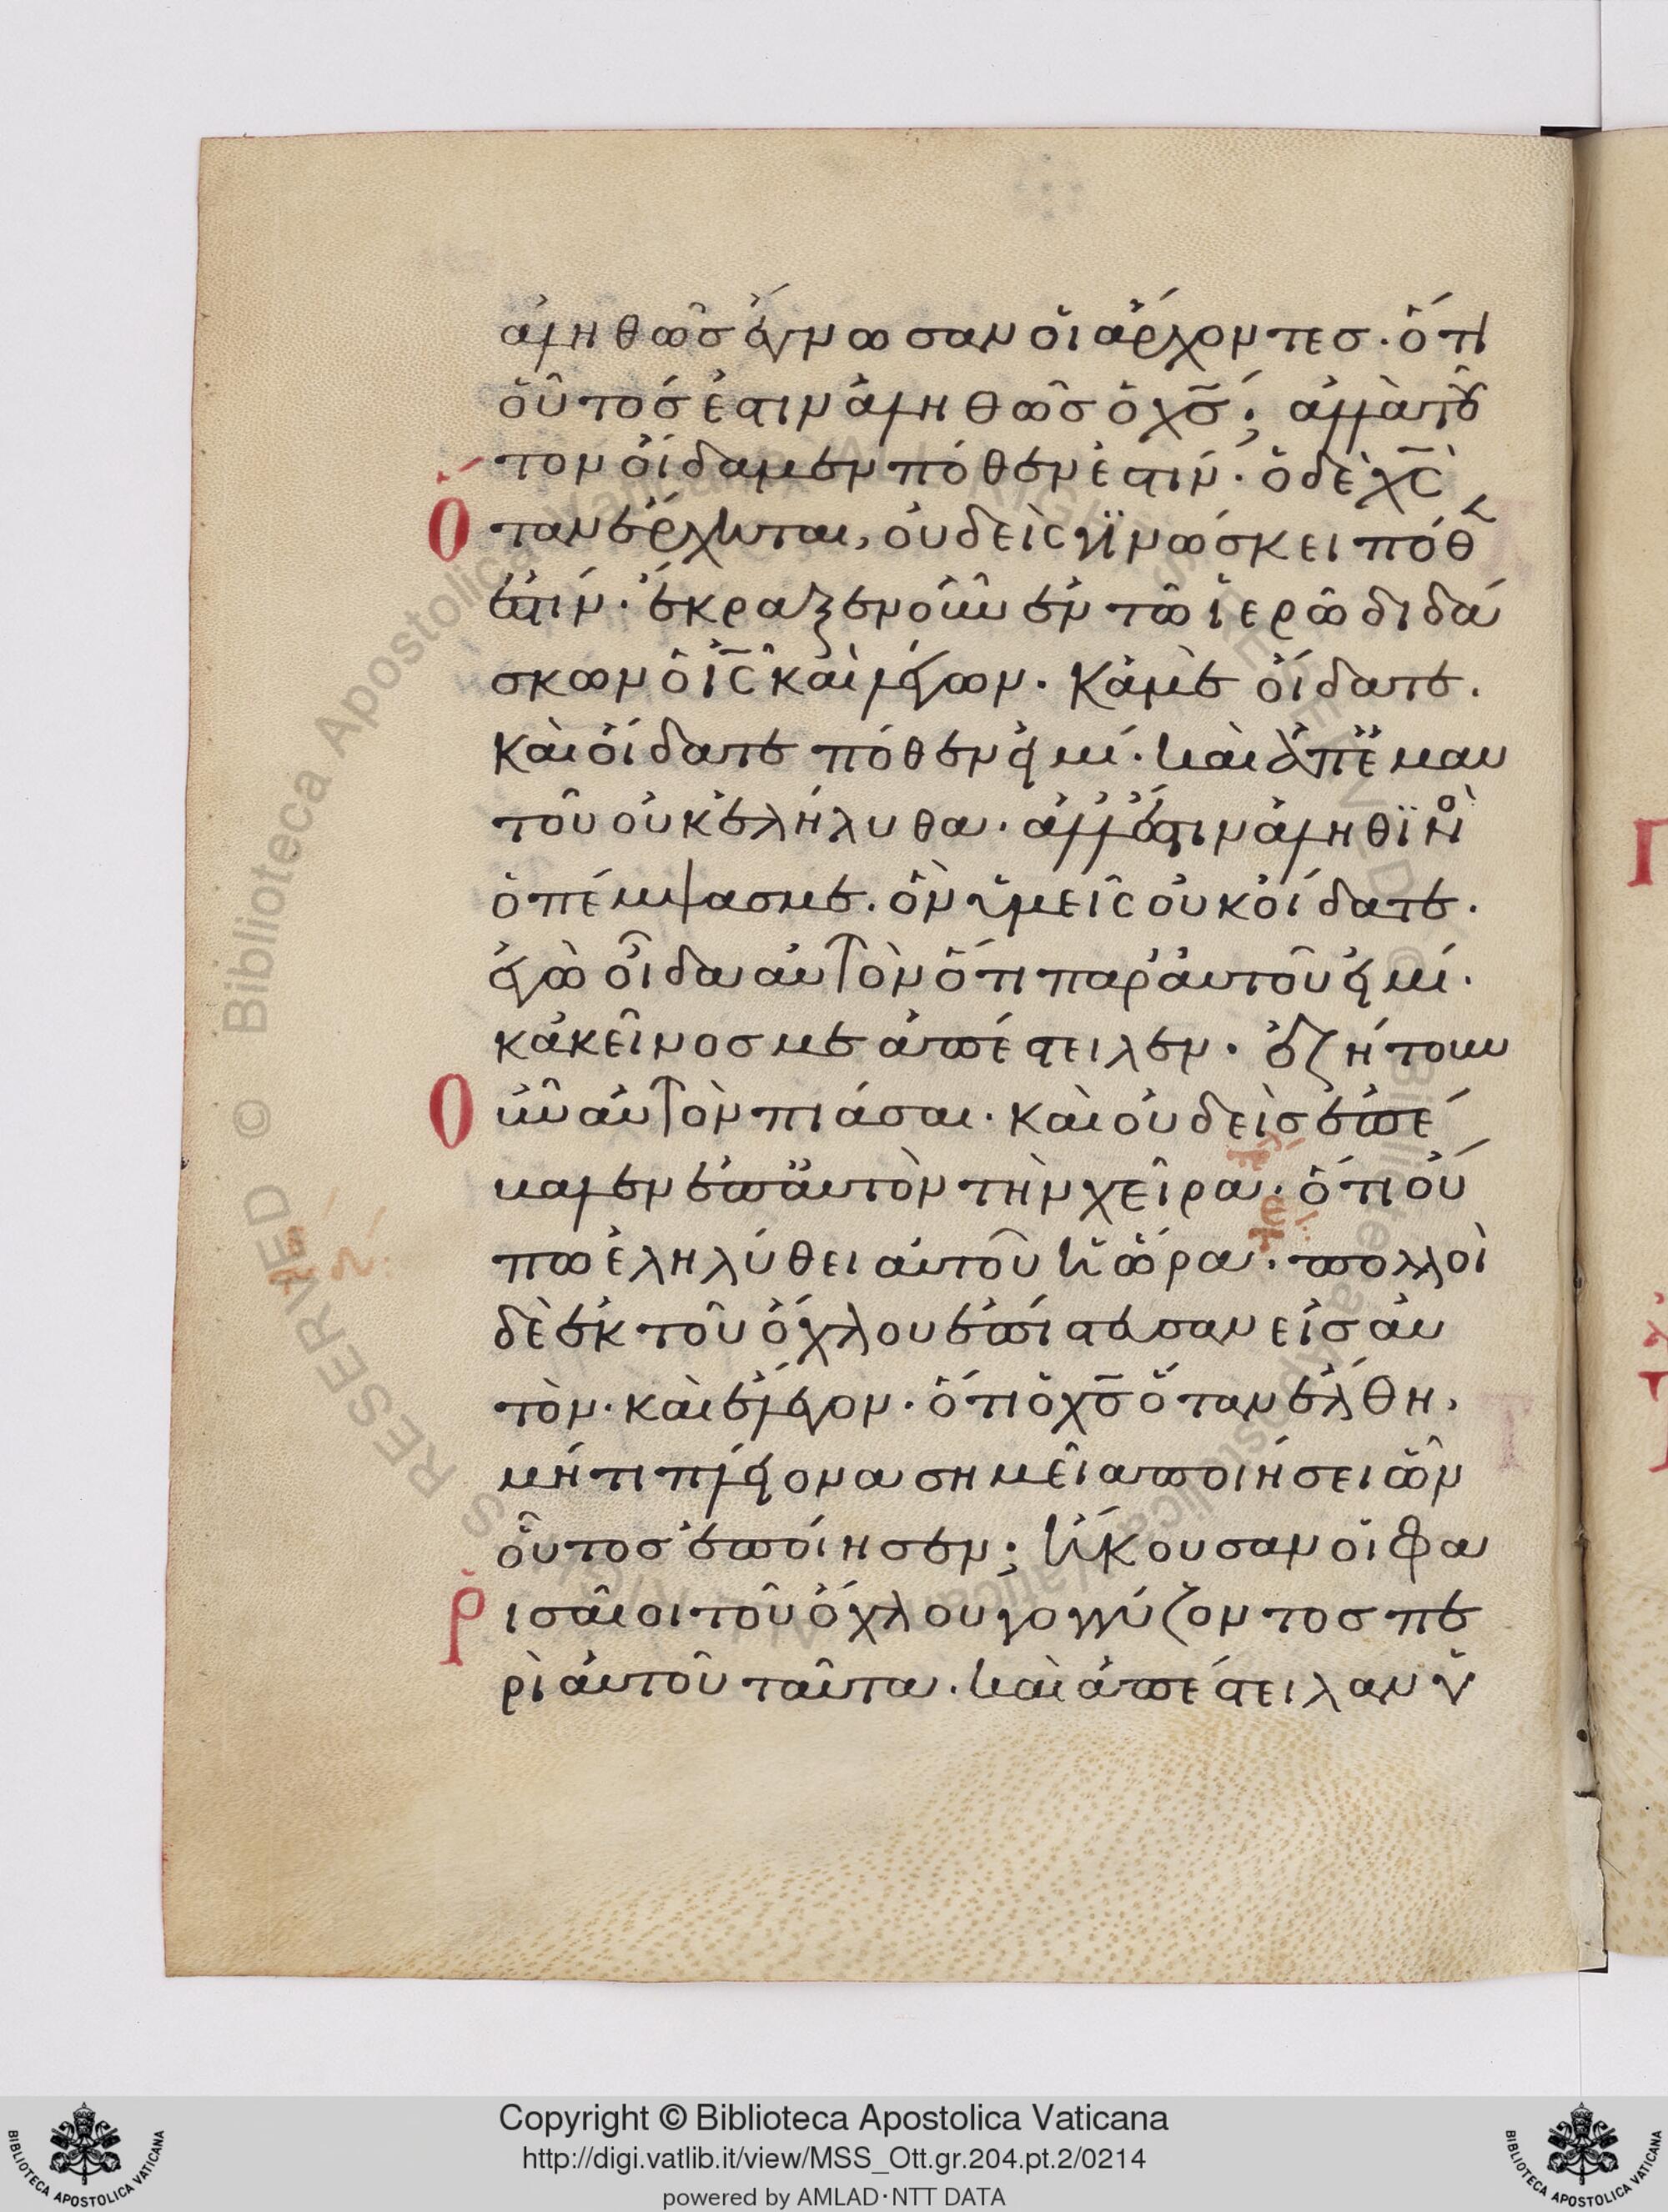 ἀληθῶσ ἔγνωσαν οἱ ἄρχοντεσ· ὅτι
οὗτόσ ἐστιν ἀληθῶσ ὁ χ̅σ̅; ἀλλὰ τοῦ
τον οἴδαμεν πόθεν ἐστίν· ὁ δὲ χ̅ς̅
ὅταν ἔρχηται, οὐδεὶς γϊνώσκει πόθ
ἐστίν· ἔκραξεν οὖν ἐν τῶ ἱερῶ διδά
σκων ὁ ι̅ς̅ καὶ λέγων· κἀμὲ οἴδατε·
καὶ οἴδατε πόθεν εἰμί· καὶ ἀπ' ἐμαυ
τοῦ οὐκ ἐλήλυθα· ἀλλ' ἔστιν ἀληθϊνὸ
ὁ πέμψασ με· ὃν ὑμεῖς οὐκ οἴδατε·
ἐγὼ οἶδα αὐτὸν ὅτι παρ' αὐτοῦ εἰμί·
κἀκεῖνοσ με ἀπέστειλεν· ἐζήτουν
Ο οὖν αὐτὸν πιάσαι· καὶ οὐδεὶσ ἐπέ
βαλεν ἐπ' αὐτὸν τὴν χεῖρα· ὅτι οὔ
πω ἐληλύθει αὐτοῦ ἡ ὥρα· πολλοὶ
δὲ ἐκ τοῦ ὄχλου ἐπίστευσαν εἰσ αὐ
τὸν· καὶ ἔλεγον· ὅτι ὁ χ̅σ̅ ὅταν ἔλθη,
μήτι πλείονα σημεῖα ποιήσει ὧν
οὗτοσ ἐποίησεν; ἤκουσαν οἱ φα
ρισαῖοι τοῦ ὄχλου γογγύζοντοσ πε
ρὶ αὐτοῦ ταῦτα· καὶ ἀπέστειλαν ὑ
Copyright © Biblioteca Apostolica Vaticana
http://digi.vatlib.it/view/MSS_Ott.gr.204.pt.2/0214
powered by AMLAD·NTT DATA
BIBLIOTECA APOSTOLICA VATICANA
BIBLIOTECA APOSTOLICA VATICANA